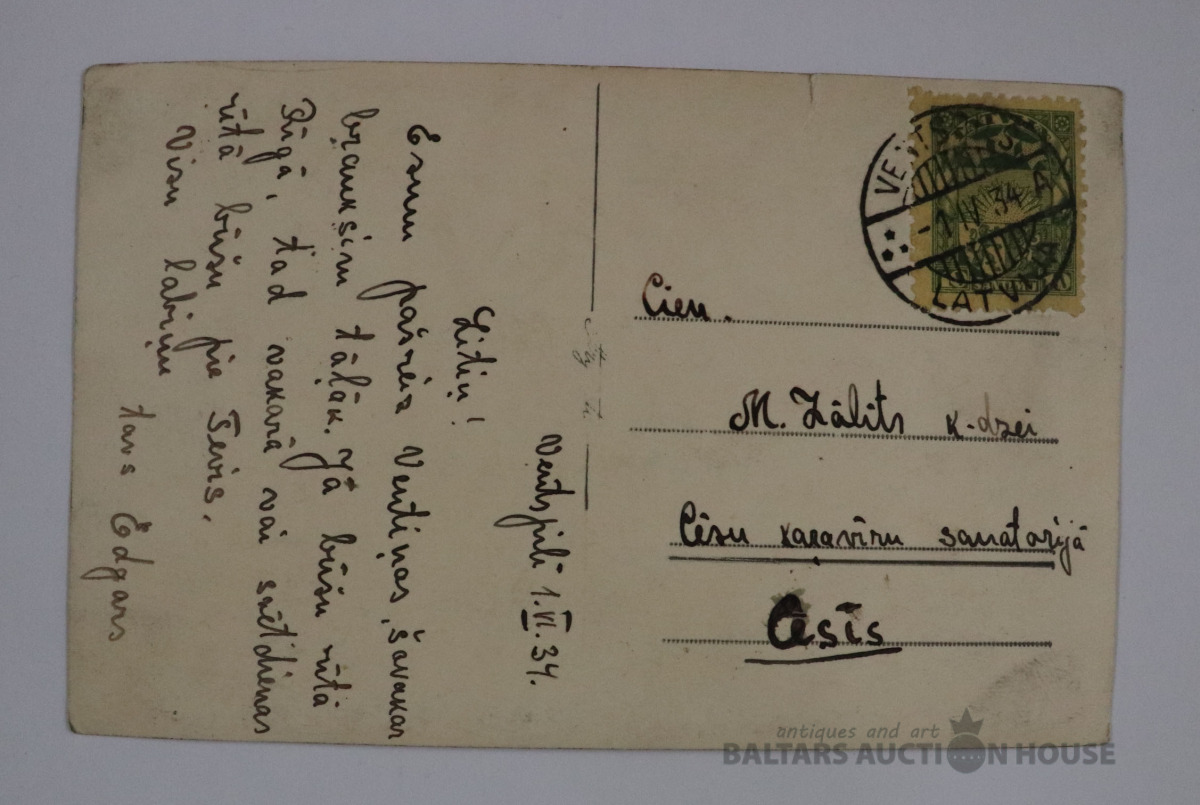 Ventspilī 1.VI.34.
Zitiņ!
Esmu pareiz Ventiņos, šavakar
braukšu tālāk. Jā būšu rītā
Rīgā, tad vakarā vai svētdienas
rītā būšu pie Tevis.
Visu labiņu
tavs Edgars
VENTSPILS
-1 IV 34
LATVIJA
Cien.
M. Zālīts k-dzei
Cēsu karavīru sanatorijā
Cēsīs
antiques and art
BALTARS AUCTION HOUSE